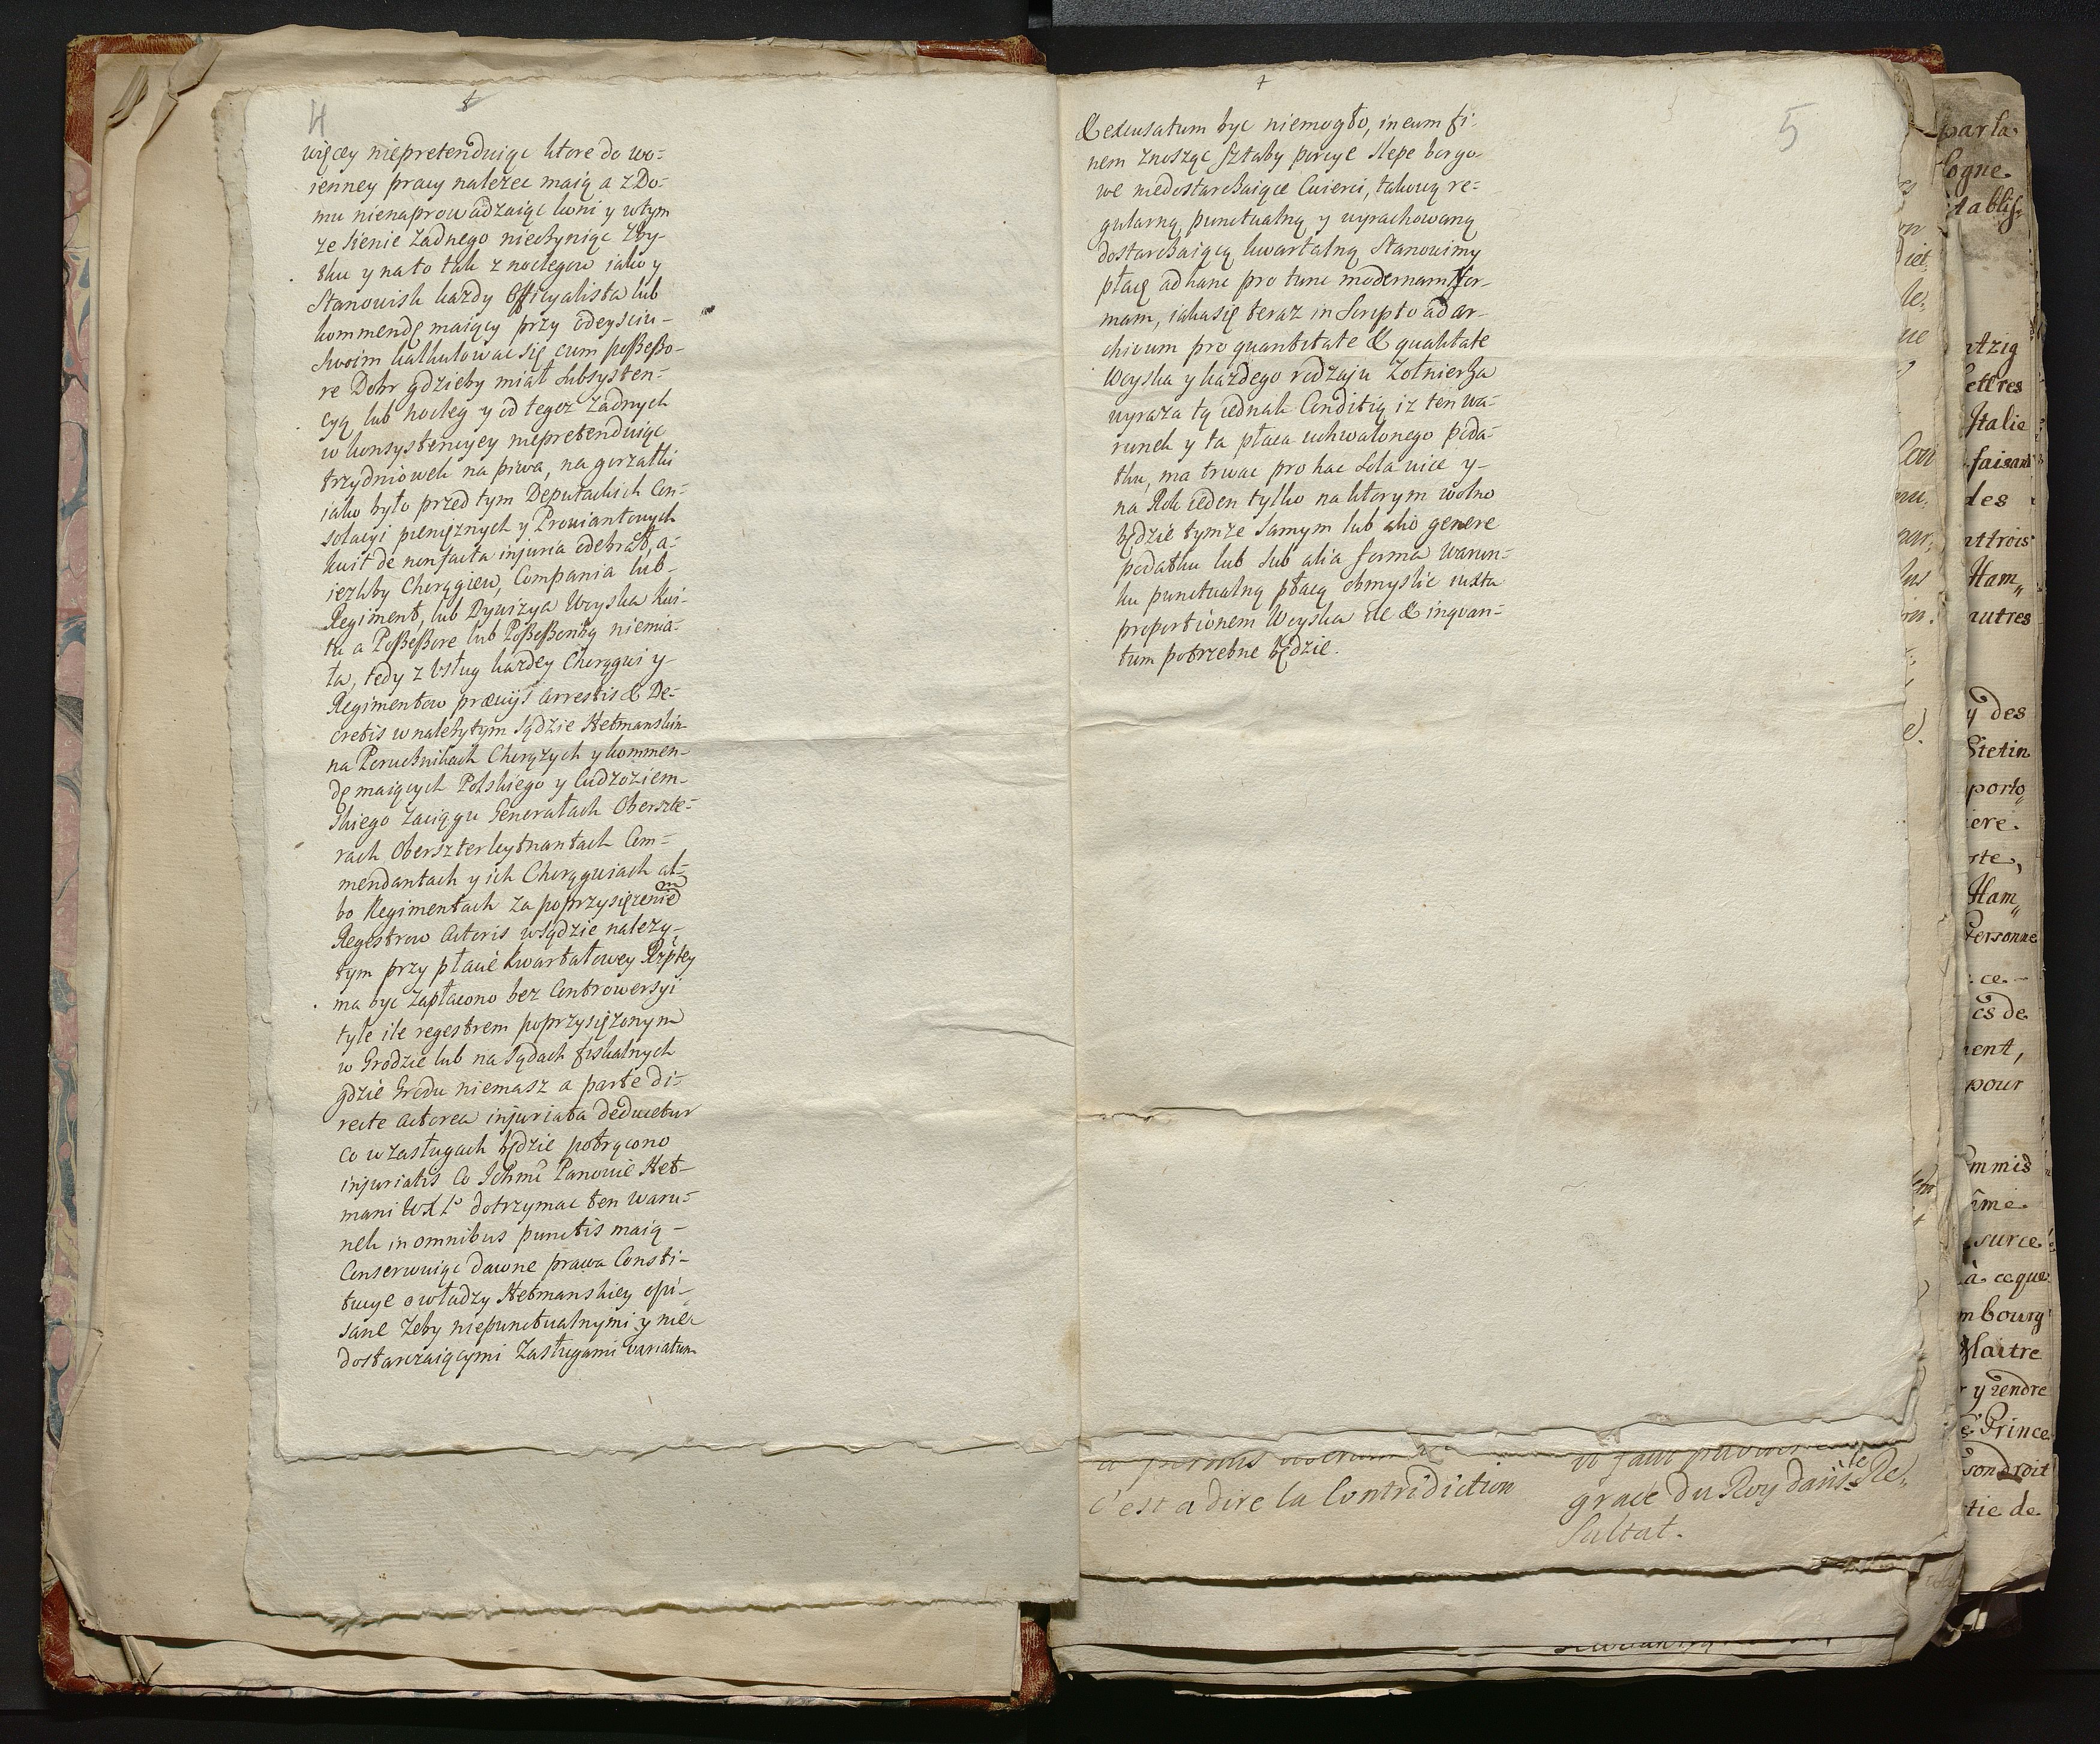 4
więcey niepretenduiąc ktore do wo-
ienney pracy nalezec maią a z Do-
mu nienaprowadzaiąc koni y wtym
ze sienie zadnego nieczyniąc zby-
tku y nato tak z noclegow iako y
Stanowisk kazdy Officyalista lub
kommendę maiący przy odeysciu
swoim kalkulowac się cum possesso-
re Dobr gdzieby miał subsysten-
cyą lub nocleg y od tegoz zadnych
w konsystencyey niepretenduiąc
trzydniowek na piwa, na gorzałki
iako było przed tym Deputackich Con-
solacyi pienięznych y Prowiantowych
kwit de non facta injuria odebrał, a-
iezliby Chorągiew, Compania lub
Regiment, lub Dywizya Woyska kwi-
tu a Possessore lub Possessoribg niemia-
ła, tedy z Usług kazdey Chorągwi y
Regimentow prævijs arrestis & De-
cretis w nalezytym Sądzie Hetmanskim
na Porucznikach Chorązych y kommen-
dę maiących Polskiego y Cudzoziem-
skiego zaciągu Generałach Oberszte-
rach Oberszterleytnantach Com-
mendantach y ich Chorągwiach al-
bo Regimentach za poprzysięzeniem
Regestrow Actoris w Sądzie nalezy-
tym przy płacie kwartałowey Rzptey
ma byc zapłacono bez Controwersyi
tyle ile regestrem poprzysięzonym
w Grodzie lub na Sądach fiskalnych
gdzie Grodu niemasz a parte di-
recte actorea injuriata deducetur
co w zasługach będzie potrącono
injuriatis Co Ichmć Panowie Het-
mani dotrzymac ten waru-
nek in omnibus punctis maią
Conserwuiąc dawne prawa Consti-
tucye o władzy Hetmanskiey opi-
sane zeby niepunctualnymi y nie
dostarczaiącymi zasługami variatum
5
& excusatum byc niemogło, in eum fi-
nem znosząc sztaby porcye slepe borgo-
we niedostarczaiące Cwierci, takową re-
gularną punctualną y wyrachowaną
dostarczaiącą kwartalną Stanowimy
płacę ad hanc pro tunc modernam for-
mam, iaka się teraz in Scripto ad ar-
chivum pro quantitate & qualitate
Woyska y kazdego rodzaju Zołnierza
wyraza tą iednak Conditią iz ten wa-
runek y ta płaca uchwalonego poda-
tku, ma trwac pro hac sola vice y
na Rok ieden tylko na ktorym wolno
będzie tymze samym lub alio genere
podatku lub sub alia forma warun-
ku punctualną płacą obmyslic iuxta
proportionem Woyska ile & inquan-
tum potrzebne będzie.
c'est a dire la Contridiction
grace du Roy dans le Re-
sultat.
par la
logne
tablis-
ntzig
ettres
Italie
faisant
des
nttrois
Ham„
autres
y des
Stetin
porto„
iere.
rte,
Ham„
Personne
ce
es de
ment,
pour
mmis
ime
surce
à ceque
mbourg
Maitre
r y rendre
é Prince
son droit
tie de